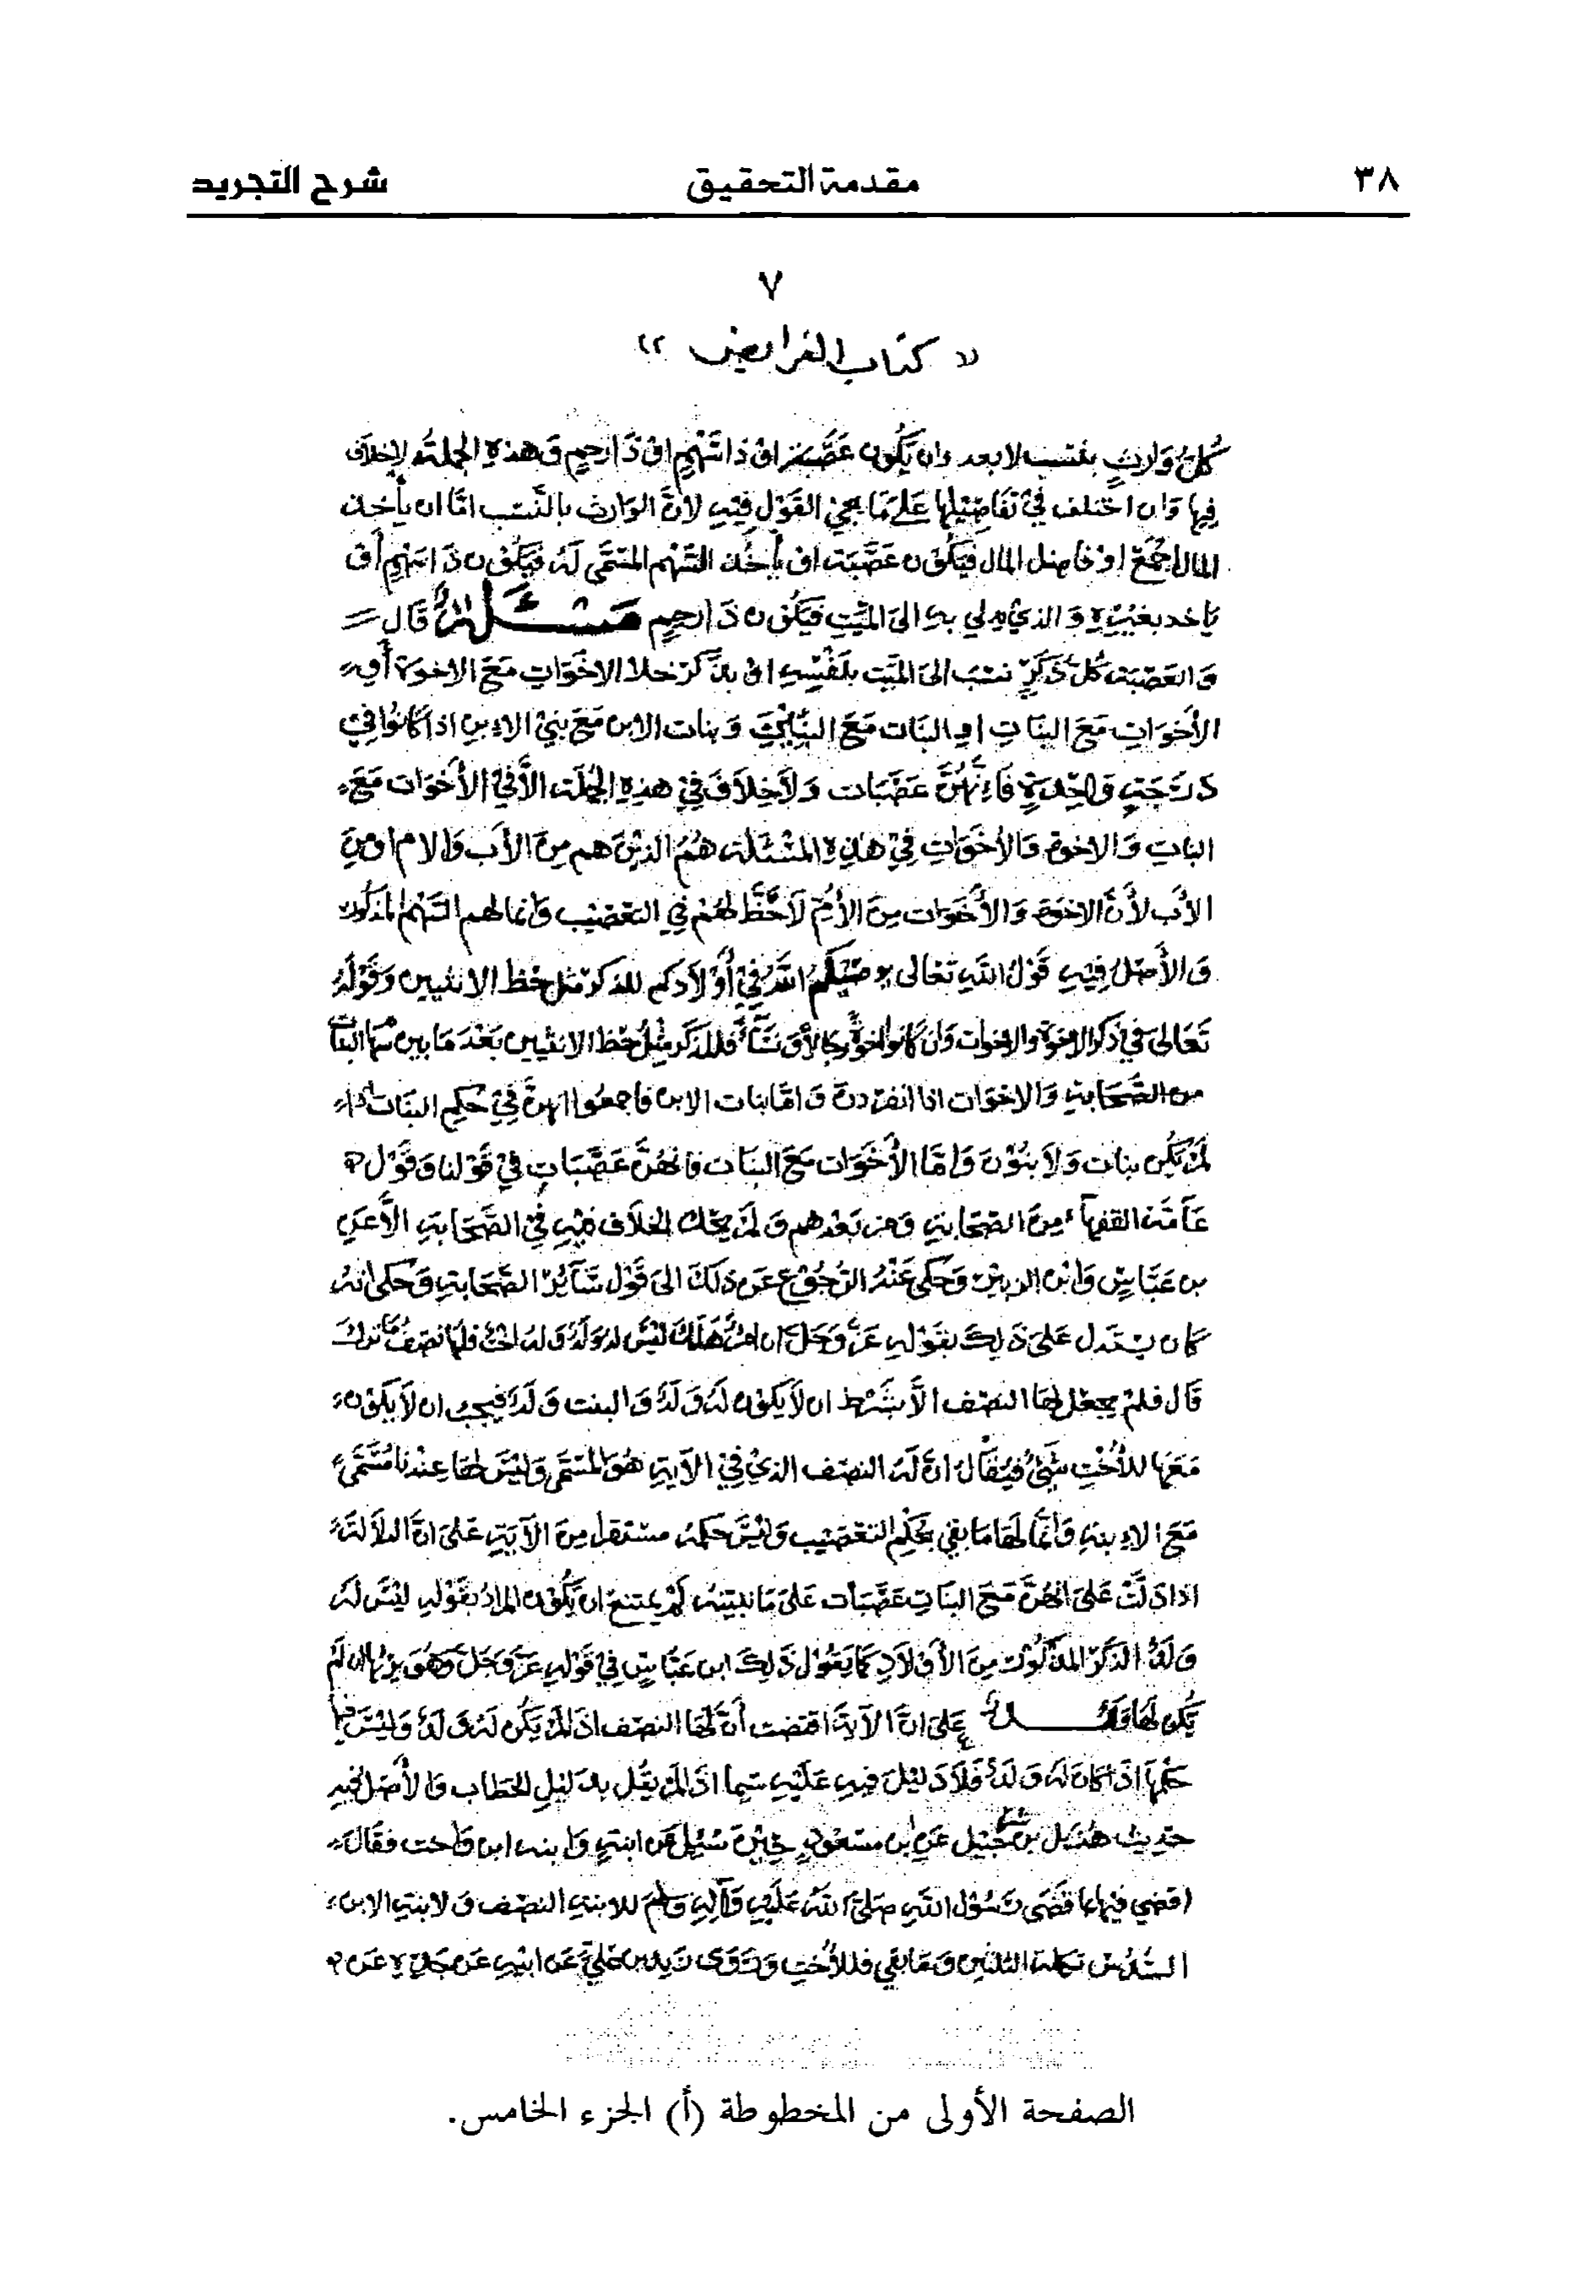 ٣٨ مقدمة التحقيق شرح التجريد
٧
« كتاب الفرايض »
كُلُّ وَارِثٍ بنسب لا بعد وان يَكُون عَصَبَة اوْ ذا سَهْمٍ اوْ ذَا رحمٍ وَهذهِ الجملة لا خلاف
فيها وَان اختلف في تفَاصِيْلِها عَلى مَا يجئ القَوْل فيْهِ لانَّ الوَارث بالنَّسَب امّا ان يأخذ
المال اجْمَعَ اوْ فاضل المال فيَكُوْن عَصَبَة اوْ يأخُذ السَّهْم المسَمَّى لَهُ فيَكُوْن ذَا سَهْمٍ أوْ
يَاخد بغيْرِهِ وَالذيْ يدلي به الى الميِّتِ فيَكُوْن ذَا رحمٍ مَسْئَلَة قَال
وَالعَصَبَة كُلّ ذَكَرٍ نسَبَ الىَ الميِّت بنَفْسِهِ اوْ بذَكَر خلا الاخَوَاتِ مَعَ الاخوة أوِ
الأخَوَاتِ مَعَ البنَاتِ اوِ البنَات مَعَ البَنِيْنَ وَبنات الابن مَعَ بَنيْ الابنِ اذا كَانوُا فيْ
دَرَجَةٍ وَاحِدَةٍ فَاِنَّهُنَّ عَصَبَات وَلاَ خِلاَفَ فيْ هذِهِ الجُمْلَة الاَّ فيْ الأخَوَات مَعَ
البنَاتِ وَالاخوة وَالأخَوَاتِ فِيْ هَذِهِ المسْئَلة هُمُ الذيْنَ هم مِنَ الأَب وَالام او مِنَ
الأَب لأَنَّ الاخوَة وَالأخَوَات مِنَ الأُمِّ لاَ حَظَّ لهُمْ فِي التعْصِيْب وَانما لهم السَّهْم المذكور
وَالأَصْلُ فِيْهِ قَوْلُ اللهِ تعَالى يوصيْكم اللَّهُ فِيْ أوْلاَدكم للذكر مثل حظ الانثيين وَقَوْلُهُ
تَعَالىَ في ذكر الاخوة والاخوات وَان كانوا اخوَةً رجالاً وَنسَآءً فللذكَر مِثْلُ حَظ الانثيين بَعْدَ مَا بين سهَام البنات
من الصَّحَابةِ وَالاخوَات اذا انفَردنَ وَامّا بنات الابن فاجمعُوا انهنَّ فِيْ حُكمِ البنَات اذا
لمْ يَكُن بنات وَلاَ بنُوْنَ وَامَّا الأَخَوَات مَعَ البنَات فانهُنَّ عَصَبَاتٍ فيْ قَوْلنا وَقَوْل
عَامّة الفقهآء مِنَ الصَّحَابةِ وَمن بَعْدهم وَلمْ يحْك الخلاَف فيْهِ فيْ الصَّحَابَةِ الاَّ عَنِ
بن عَبَّاسٍ وَابْن الزبير وَحُكىَ عَنْهُ الرجُوْع عَن ذلكَ الىَ قَوْل سَآئر الصَّحَابةِ وَحكى انهُ
كَان يسْتَدل عَلىَ ذَلِكَ بقَوْلِهِ عَزَّ وَجَلَّ ان امرؤٌ هَلَكَ ليْسَ له وَلَدٌ وَله اختٌ فلها نصْفُ مَا تركَ
قَال فلمْ يجعَل لهَا النصْف الاَّ بشَرْط ان لاَ يَكوْن لَهُ وَلَدٌ وَالبنت وَلَدٌ فيجبُ ان لاَ يَكُوْن
مَعَها للأُخْتِ شَيْءٌ فيُقَالُ انَّ لَهُ النصْف الذيْ فِيْ الآيةِ هُوَ المسَمَّى وَليْسَ لهَا عِنْدنا مُسَمَّى
مَعَ الابنةِ وَانَّمَا لهَا مَا بقي بحُكْمِ التعْصِيْب وَليْسَ حكمهُ مستقل مِنَ الآيَةِ عَلىَ انَّ الدلاَلَة
اذا دَلَّتْ عَلىَ انهُنَّ مَعَ البنَاتِ عَصَبَات عَلىَ مَا نبينهُ لمْ يمتنع ان يَكُوْن المراد بقَوْلهِ ليْسَ لَهُ
وَلَدٌ الذَّكَرَ المذكُوْرَ مِنَ الأَوْلاَدِ كَمَا يَقُوْل ذَلِكَ ابن عَبَّاسٍ فيْ قَوْلهِ عَزَّ وَجَلَّ وَهُوَ يرثها ان لَمْ
يَكُن لهَا وَلَدٌ عَلىَ انَّ الآيَةَ اقتضت أنَّ لَهَا النصْف اذَا لمْ يَكُن لَهُ وَلَدٌ وَليْسَ فيها
حكمها اذَا كَانَ لَهُ وَلَدٌ فلاَ دَليْلَ فيهِ عَلَيْهِ سيما اذَا لمْ يقُل بدَليْلِ الخطاب وَالأَصْل فيه
حديث هُذيل بن شرحبيل عَنِ ابن مسْعُوْدٍ حِيْنَ سُئِلَ عَن ابنةٍ وَابنه ابن واخت فقَالَ
اقضي فيها بما قضَى رَسُوْل اللهِ صَلىَّ اللَّهُ عَلَيْهِ وَآلِهِ وَسلمَ للابنةِ النصْف وَلابنةِ الابن
السُّدُسْ تكملة الثلثين وَمَا بقي فللأُخْتِ وَرَوَى زيد بن عَليٍّ عَن ابيْهِ عَن جَدِّهِ عَن
الصفحة الأولى من المخطوطة (أ) الجزء الخامس.